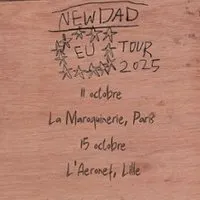 NEWDAD
EU TOUR
2025
11 octobre
La Maroquinerie, Paris
15 octobre
L'Aeronef, Lille